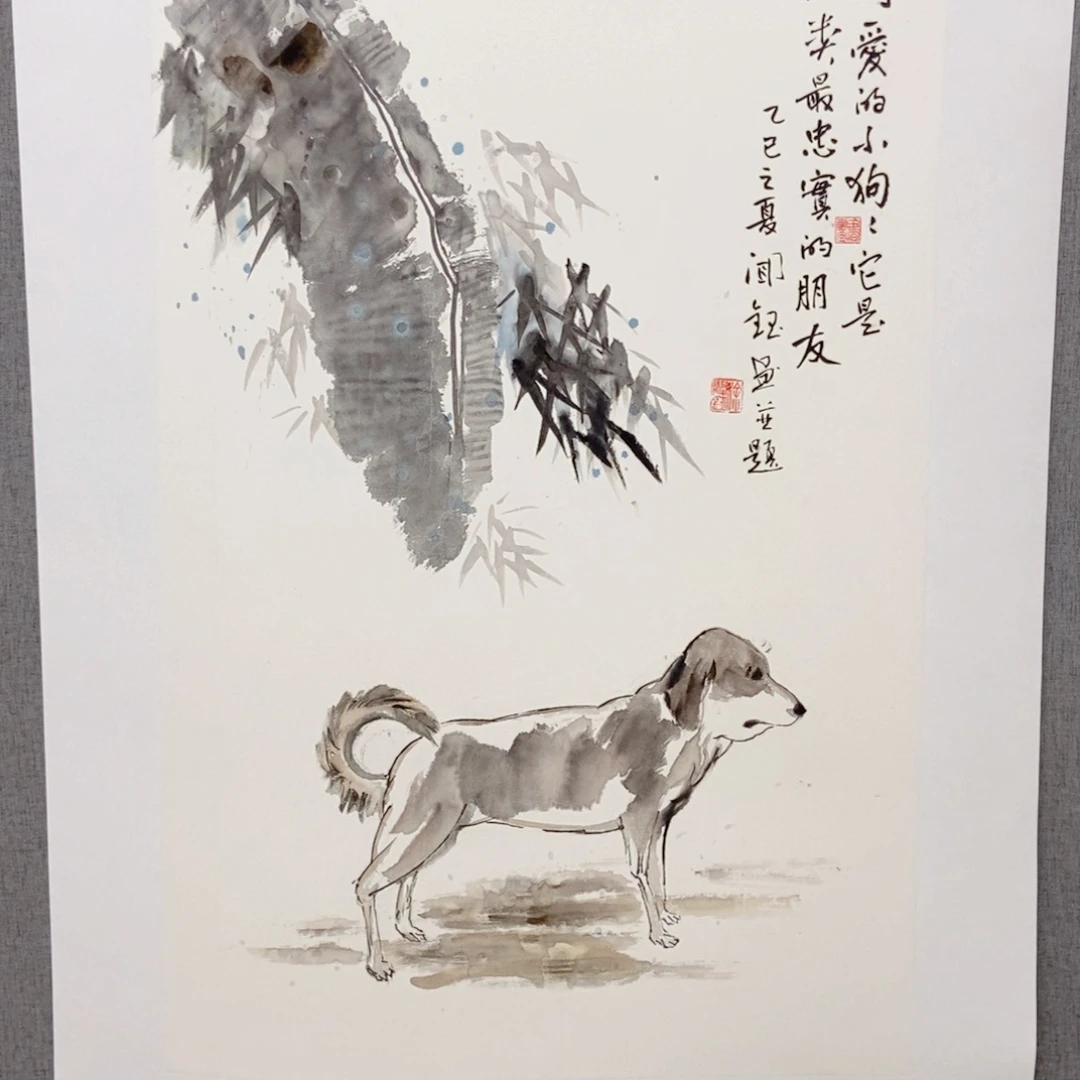 愛的小狗〻它是
类最忠實的朋友
乙巳之夏 闻钰画並題